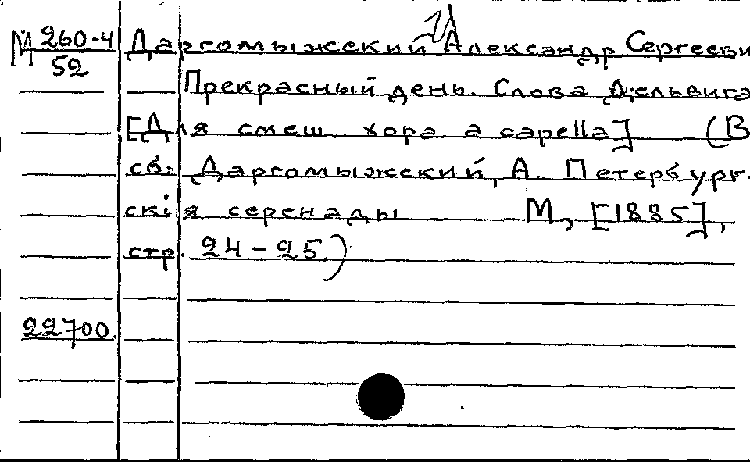 М 260-4 Даргомыжский Александр Сергееви
52
Прекрасный день. Слова Дельвига
[Для смеш. хора a capella] (В
сб: Даргомыжский, А. Петербург-
скiя серенады М, [1885],
стр. 24-25)
22700